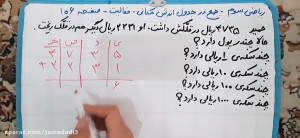 ریاضی سوم - جمع در جدول ارزش مکانی - فعالیت - صفحه ۱۰۶
حمید ۴۷۳۵ ریال در قلکش داشت. او ۲۲۳۱ ریال دیگر هم در قلکش ریخت.
حالا چند ریال پول دارد؟
چند سکه‌ی ۱ ریالی دارد؟
چند سکه‌ی ۱۰ ریالی دارد؟
چند سکه‌ی ۱۰۰ ریالی دارد؟
چند سکه‌ی ۱۰۰۰ ریالی دارد؟
ی
۵
۱
۶
aparat.com/jamedadi3